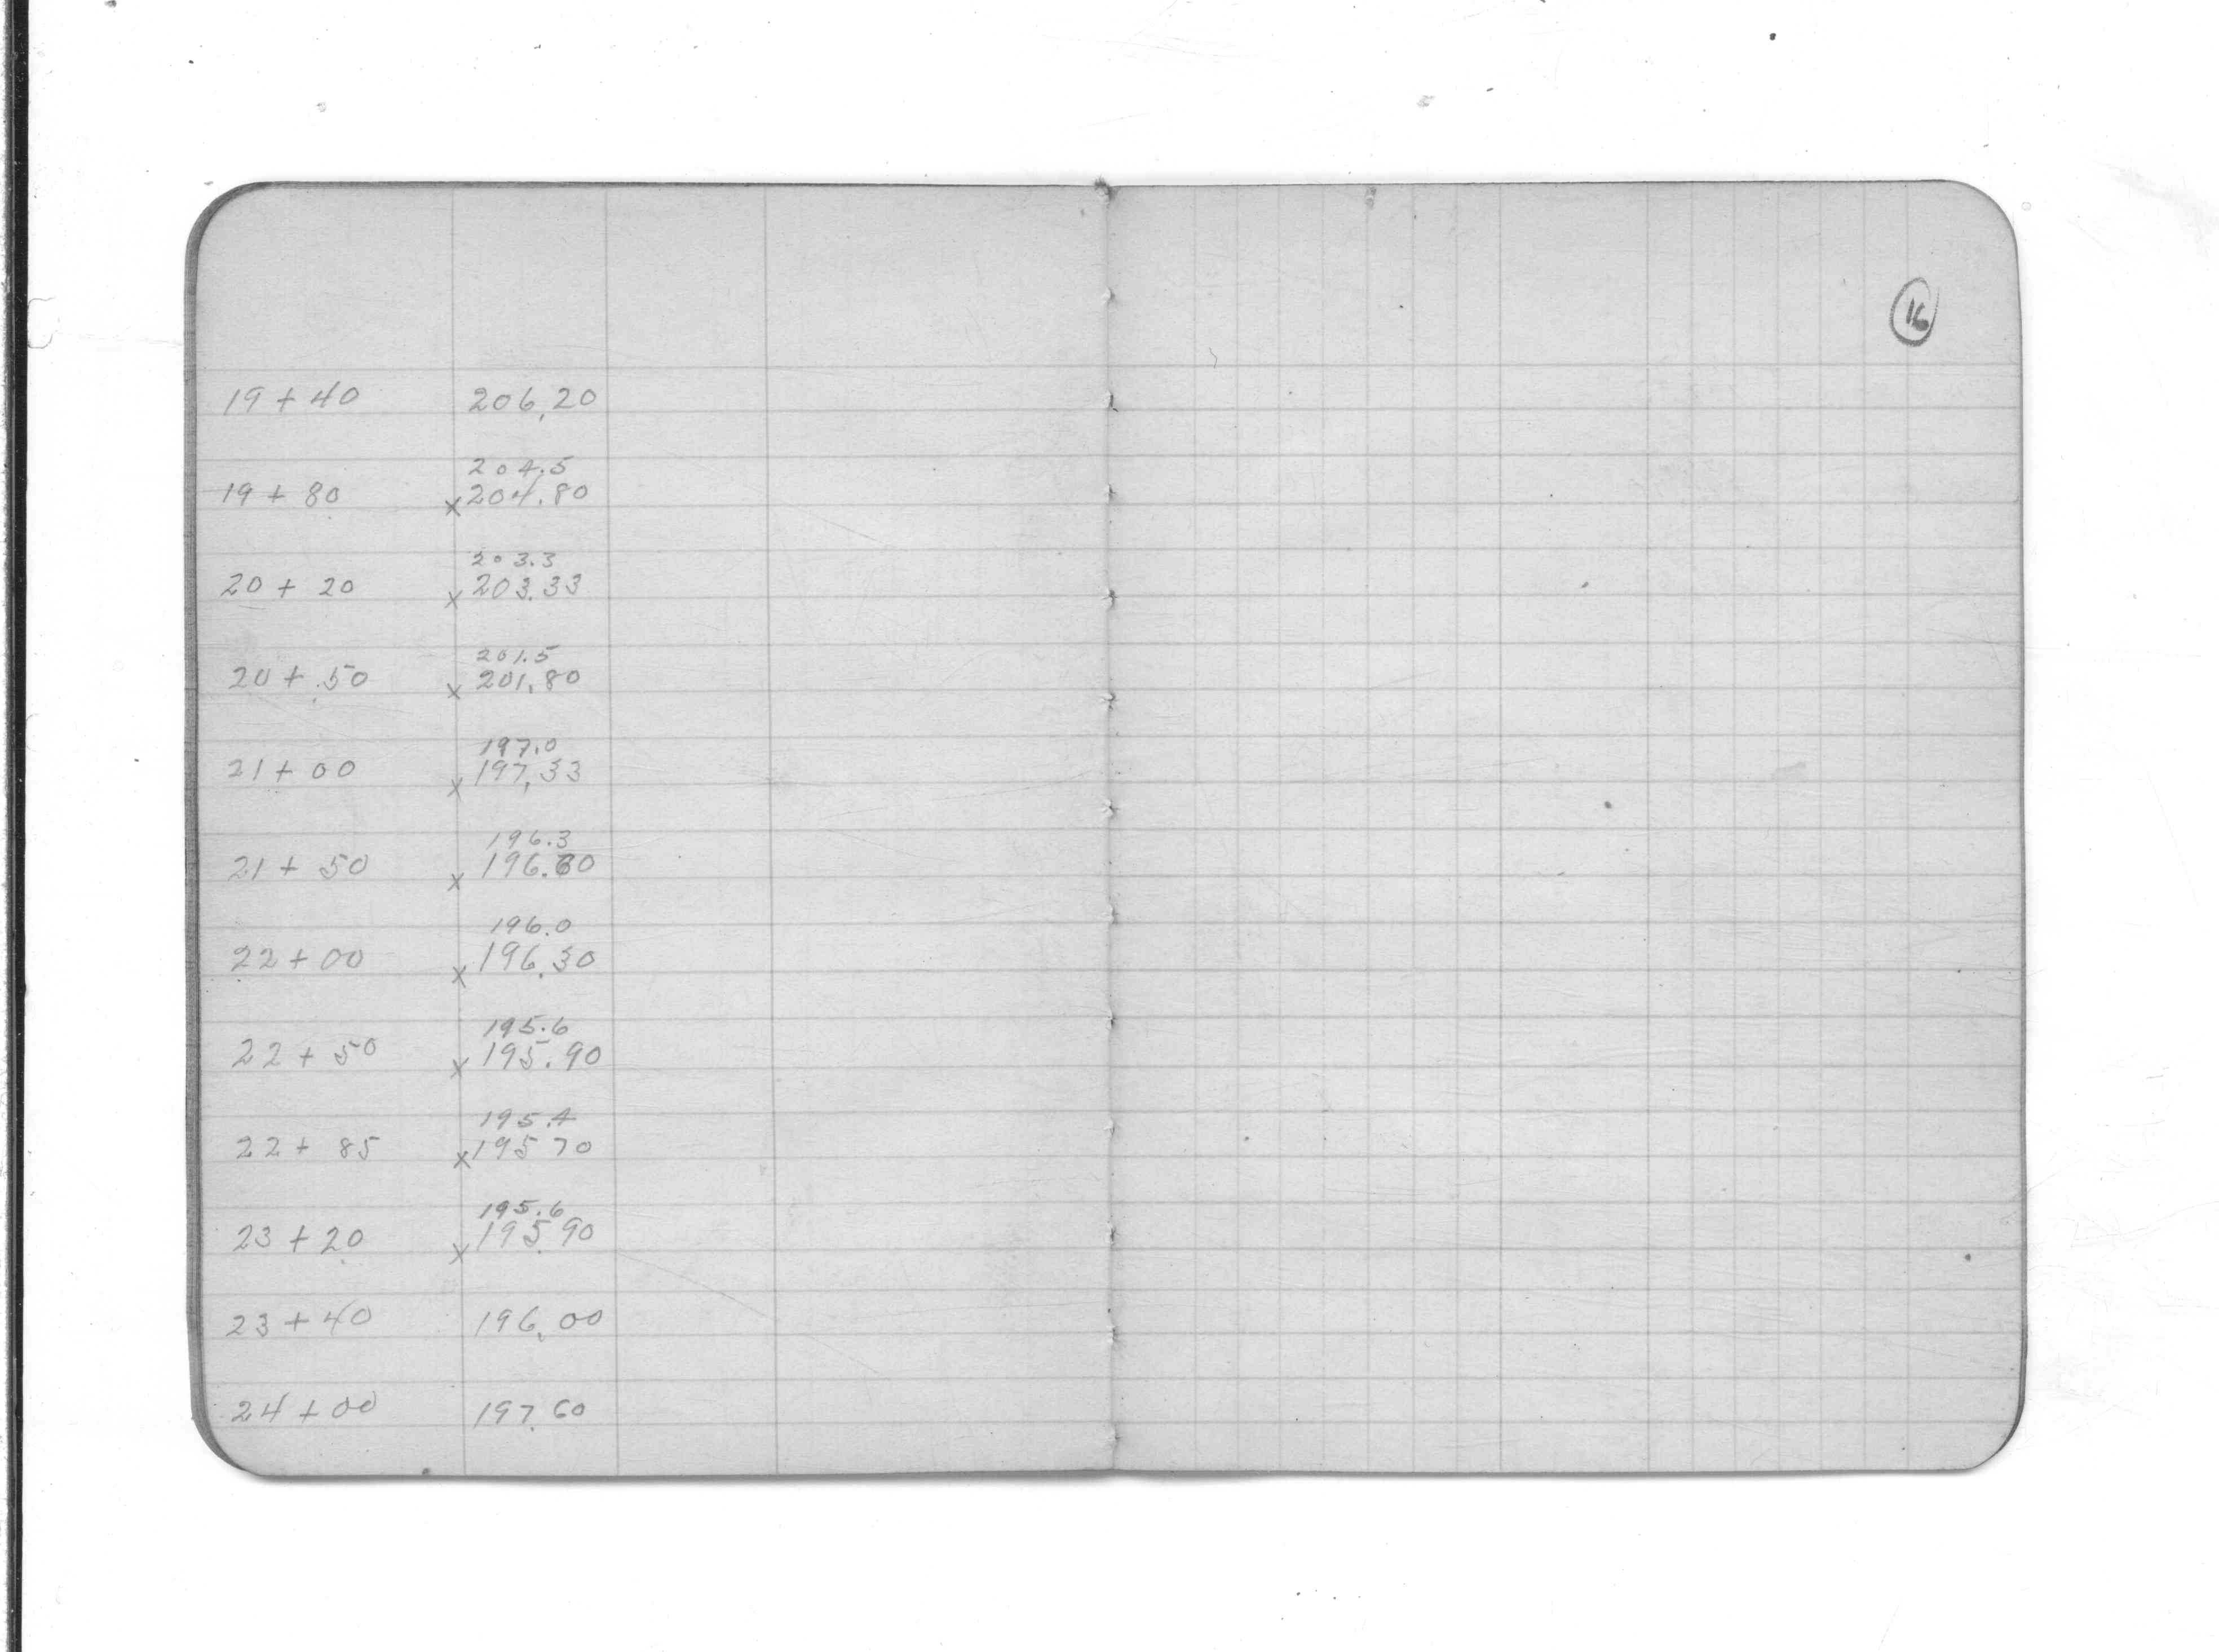 16
19 + 40 206.20
204.5
19 + 80 x 204.80
203.3
20 + 20 x 203.33
201.5
20 + 50 x 201.80
197.0
21 + 00 x 197.33
196.3
21 + 50 x 196.60
196.0
22 + 00 x 196.30
195.6
22 + 50 x 195.90
195.4
22 + 85 x 195 70
195.6
23 + 20 x 195.90
23 + 40 196.00
24 + 00 197.60